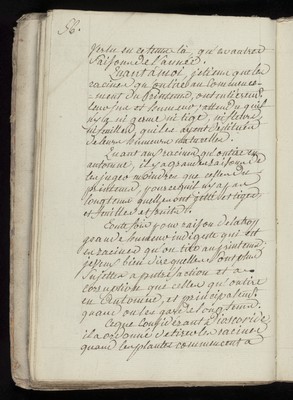 58.
plus en ce tems là, qu'es autres
saisons de l'année.
Quant à moi, je tiens que les
racines qu'on tire au commence-
-ment du printems, ont entièrement
leur suc et humeur, attendu qu'il
n'y a ni germe ni tige, ni fleurs
ni feuilles, qui les ayent destituées
de leur humeur naturelle.
Quant aux racines qu'on tire en
automne, il y a grande raison de
les juger moindres que celles du
printems, pour ce qu'il n'y a pas
longtems qu'elles ont jetté les tiges
et feuilles et fruits.
Toutefois pour raison de la trop
grande humeur indigeste qui est
es racines qu'on tire au printems,
je puis bien dire qu'elles sont plus
sujettes à putréfaction et à
corruption que celles qu'on tire
en l'automne, et principalement
quand on les garde longtems.
Ce que considérant Dioscoride,
il a ordonné de tirer les racines
quand les plantes commencent à